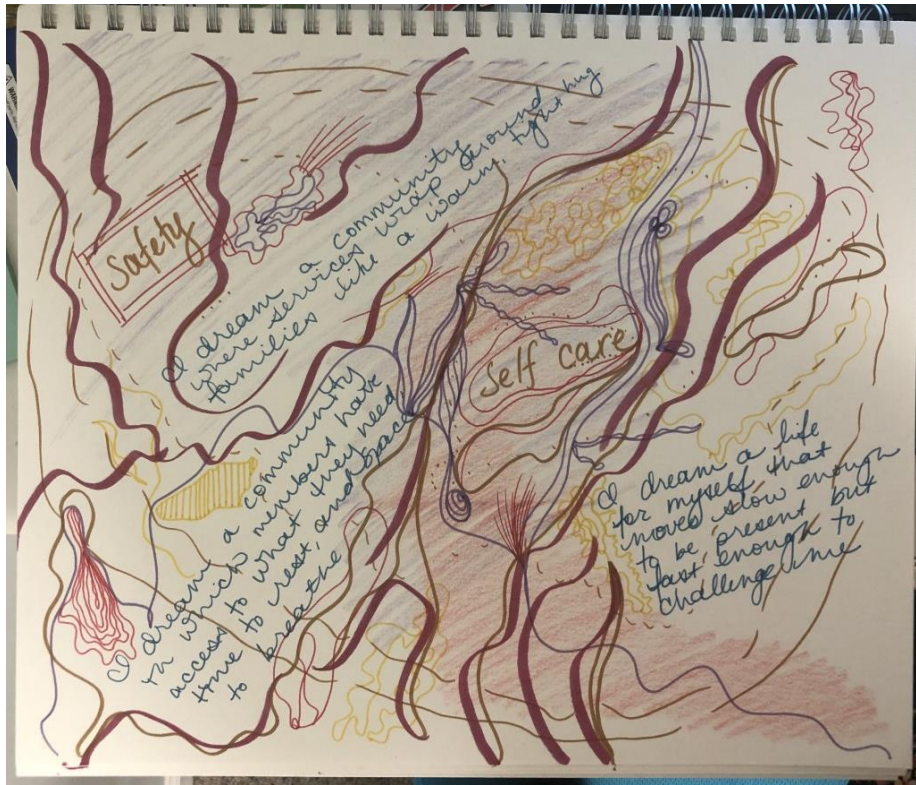 safety
I dream a community
where services wrap around
families like a warm, tight hug
self care
I dream a community
in which members have
access to what they need
time to rest, and space
to breathe
I dream a life
for myself that
moves slow enough
to be present but
fast enough to
challenge me